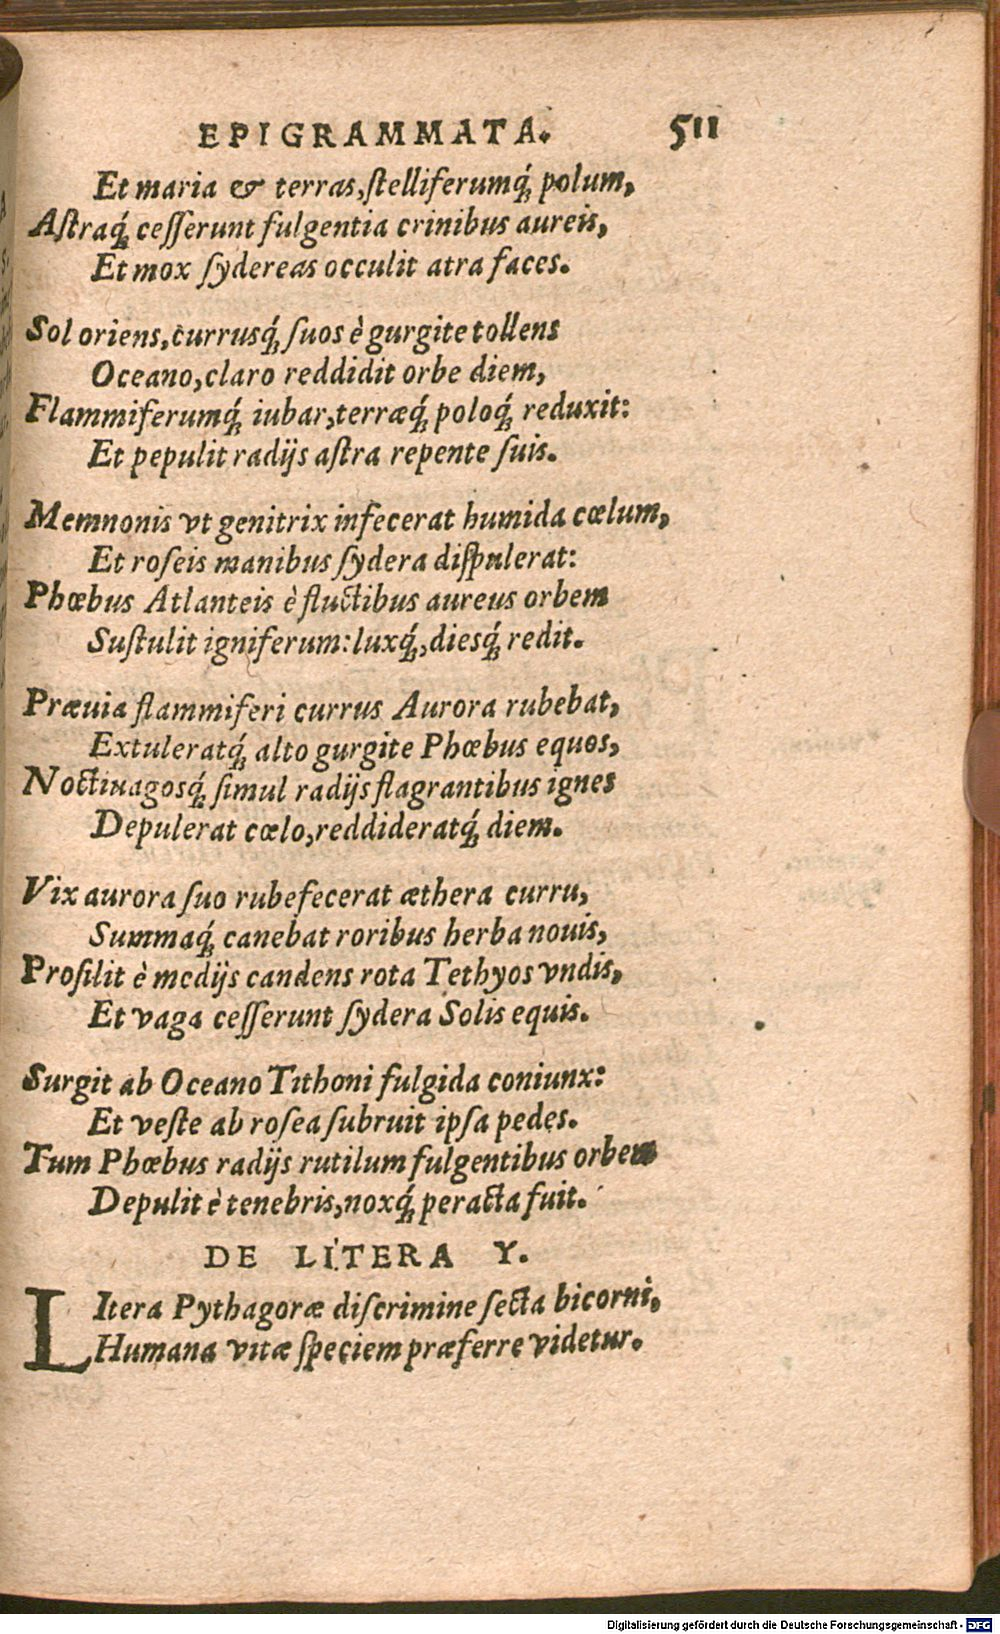 EPIGRAMMATA. 511
Et maria & terras, ſtelliferumq́ꝫ polum,
Aſtraq́ꝫ ceſſerunt fulgentia crinibus aureis,
Et mox ſydereas occulit atra faces.
Sol oriens, currusq́ꝫ ſuos è gurgite tollens
Oceano, claro reddidit orbe diem,
Flammiferumq́ꝫ iubar, terræq́ꝫ poloq́ꝫ reduxit:
Et pepulit radijs aſtra repente ſuis.
Memnonis vt genitrix infecerat humida cœlum,
Et roſeis manibus ſydera diſpulerat:
Phœbus Atlanteis è fluctibus aureus orbem
Suſtulit igniferum: luxq́ꝫ, diesq́ꝫ redit.
Præuia flammiferi currus Aurora rubebat,
Extuleratq́ꝫ alto gurgite Phœbus equos,
Noctiuagosq́ꝫ ſimul radijs flagrantibus ignes
Depulerat cœlo, reddideratq́ꝫ diem.
Vix aurora ſuo rubefecerat æthera curru,
Summaq́ꝫ canebat roribus herba nouis,
Proſilit è medijs candens rota Tethyos vndis,
Et vaga ceſſerunt ſydera Solis equis.
Surgit ab Oceano Tithoni fulgida coniunx:
Et veſte ab roſea ſubruit ipſa pedes.
Tum Phœbus radijs rutilum fulgentibus orbem
Depulit è tenebris, noxq́ꝫ peracta fuit.
DE LITERA Y.
LItera Pythagoræ diſcrimine ſecta bicorni,
Humana vitæ ſpeciem præferre videtur.
Digitalisierung gefördert durch die Deutsche Forschungsgemeinschaft - DFG